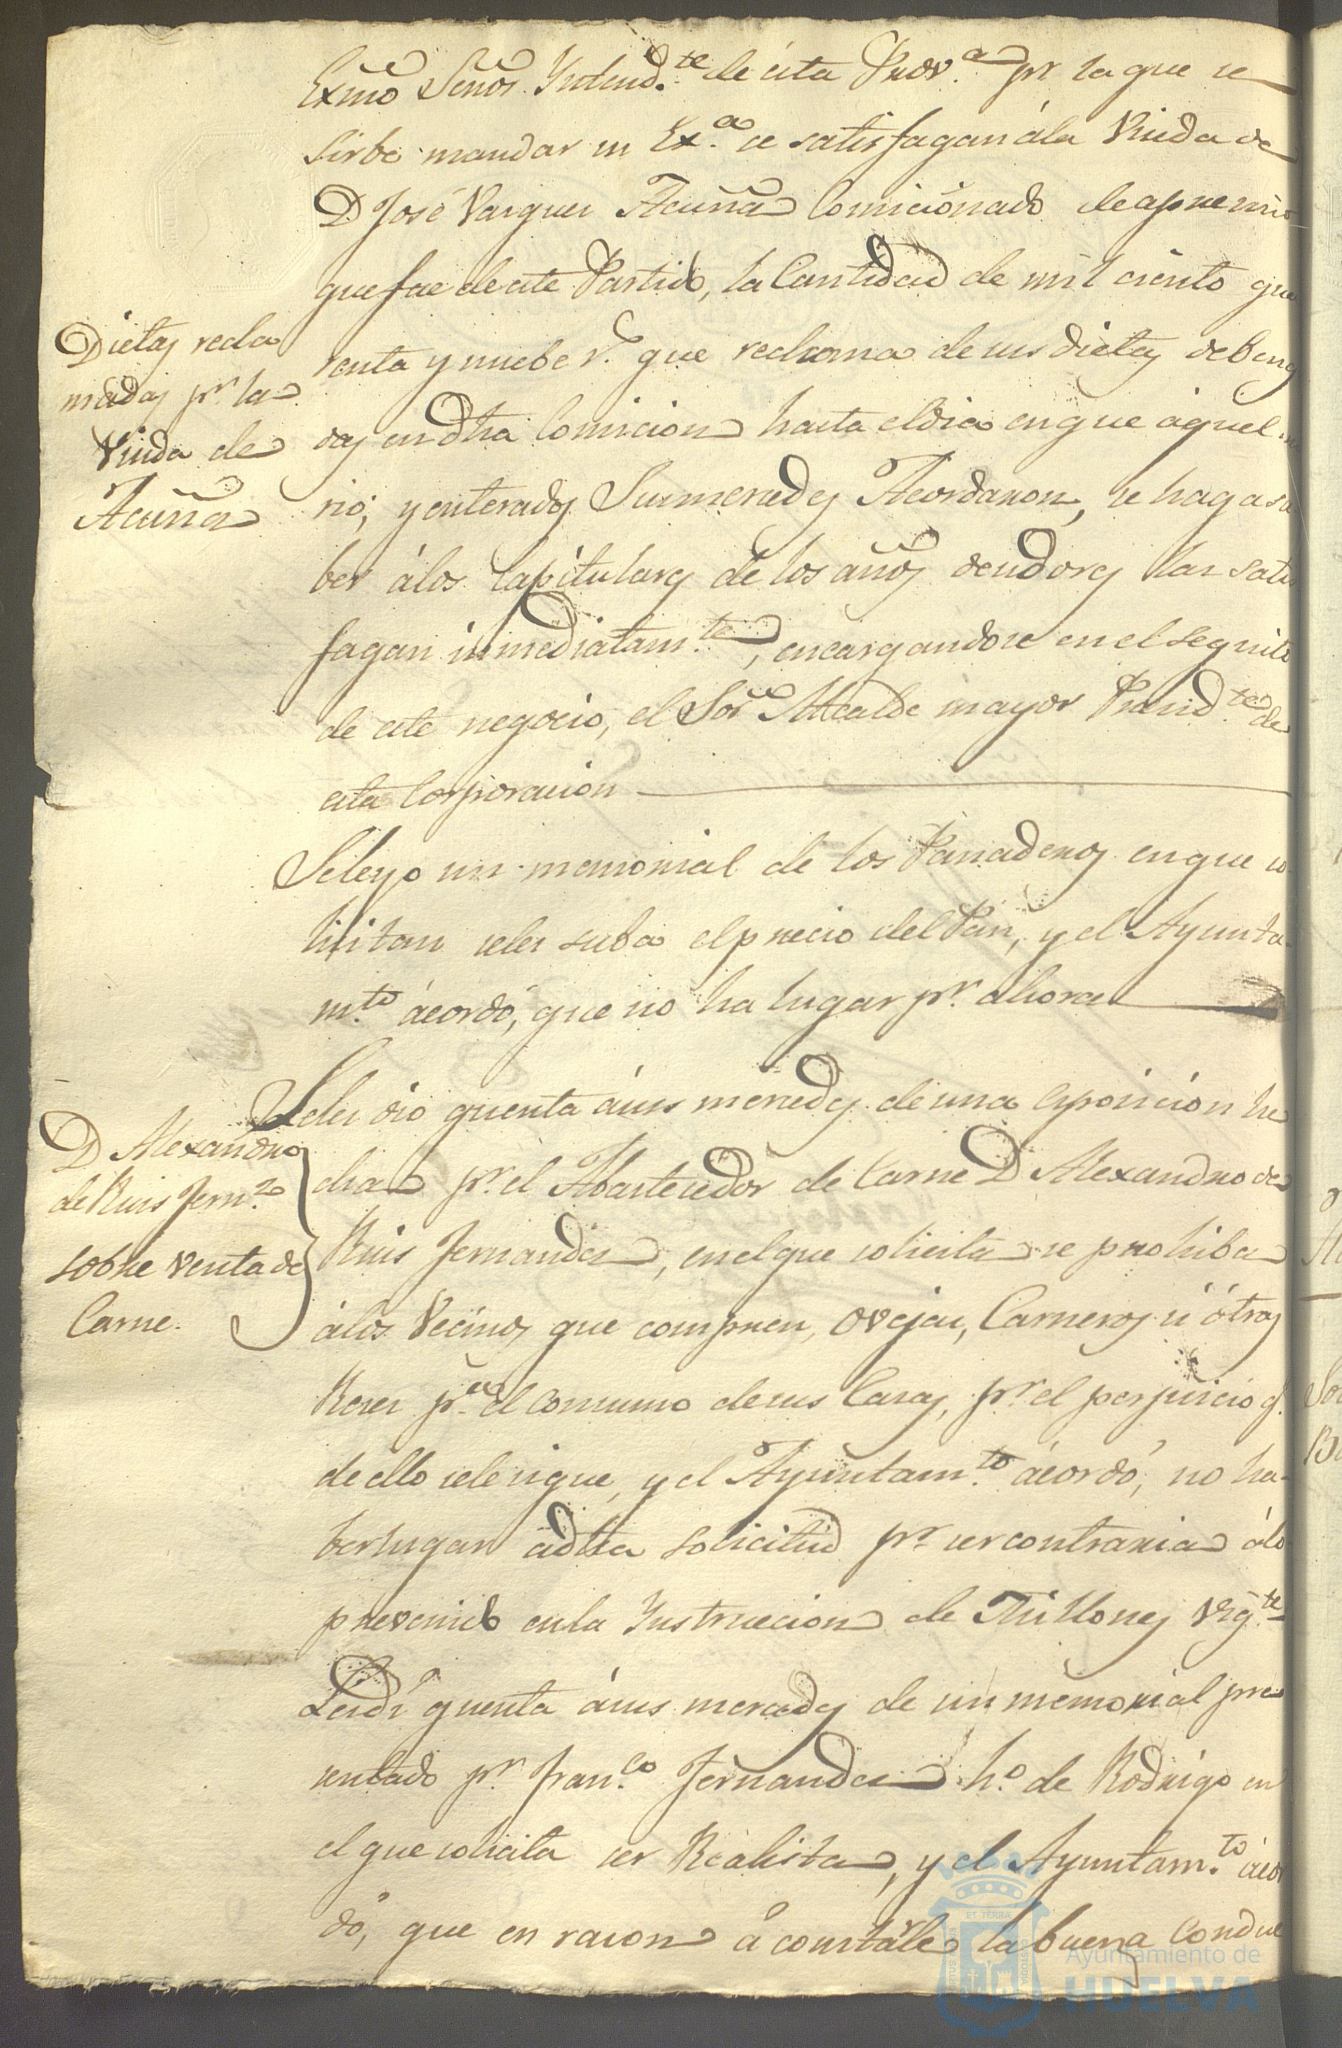 Exmo Señor Yntend.te de esta Prov.a pr la que se
sirbe mandar su Ex.a se satisfagan á la Viuda de
D José Vazquez Acuña Comicionado de apremio
que fue de este Partido, la Cantidad de mil ciento qua
renta y nuebe r.s que reclama de sus dietas debenga
das en dha Comicion hasta el dia en que aquel mu
rió; y enterados Sus mercedes Acordaron, se haga sa
ber á los Capitulares de los años deudores las satis
fagan inmediatam.te, encargandose en el seguito
de este negocio, el Sor Alcalde mayor Presid.te de
esta Corporacion
Dietas recla
madas pr. la
Viuda de
Acuña
Se leyo un memorial de los Panaderos en que so-
licitan se les suba el precio del Pan, y el Ayunta-
m.to acordó, que no ha lugar pr. ahora
Se les dio quenta á sus mercedes de una esposicion he
cha pr. el Abastecedor de Carne D Alexandro de
Ruis Fernandez, en el que solicita se prohiba
á los Vecinos que compren, Ovejas, Carneros ú ótras
Reses pr.a el consumo de sus Casas, pr. el perjuicio q.
de ello se le sigue, y el Ayuntam.to acordó, no ha-
ber lugar a dha solicitud pr. ser contraria á lo
prevenido en la Ynstruccion de Millones vig.te
D Alexandro
de Ruis Fern.z
sobre venta de
Carne.
Se dió quenta á sus mercedes de un memorial pre
sentado pr. Fran.co Fernandez h.o de Rodrigo en
el que solicita ser Realista, y el Ayuntam.to acor
dó, que en razon á constarle la buena Conduc
Ayuntamiento de
HUELVA